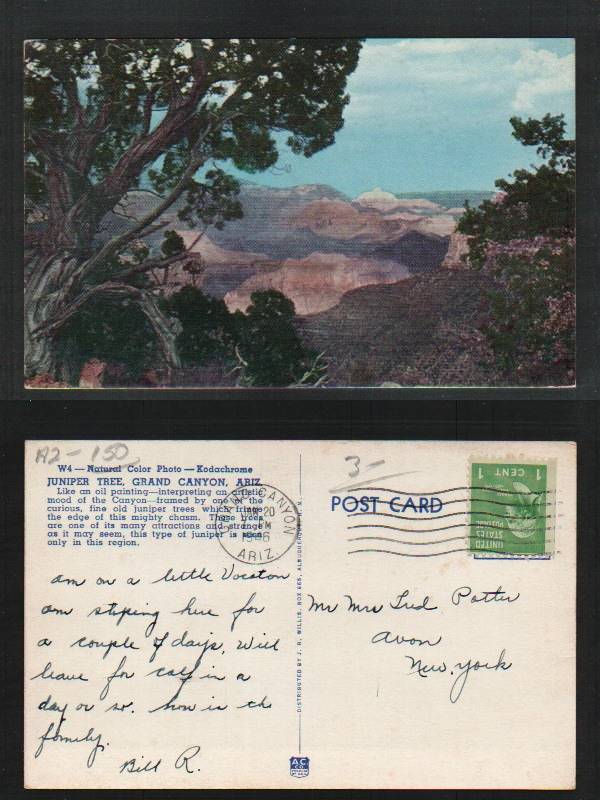 A2-150
3-
W4 — Natural Color Photo — Kodachrome
JUNIPER TREE, GRAND CANYON, ARIZ.
Like an oil painting—interpreting an artistic
mood of the Canyon—framed by one of the
curious, fine old juniper trees which fringe
the edge of this mighty chasm. These trees
are one of its many attractions and strange
as it may seem, this type of juniper is seen
only in this region.
GRAND CANYON
20
PM
1946
ARIZ.
POST CARD
1 CENT 1
UNITED
STATES
POSTAGE
am on a little Vocation
am stoping here for
a couple of days, Will
leave for calf in a
day or so. how is the
family.
Bill R.
DISTRIBUTED BY J. R. WILLIS, BOX 665, ALBUQUERQUE, N. M.
Mr Mrs Fred Potter
Avon
New York
A C
CO.